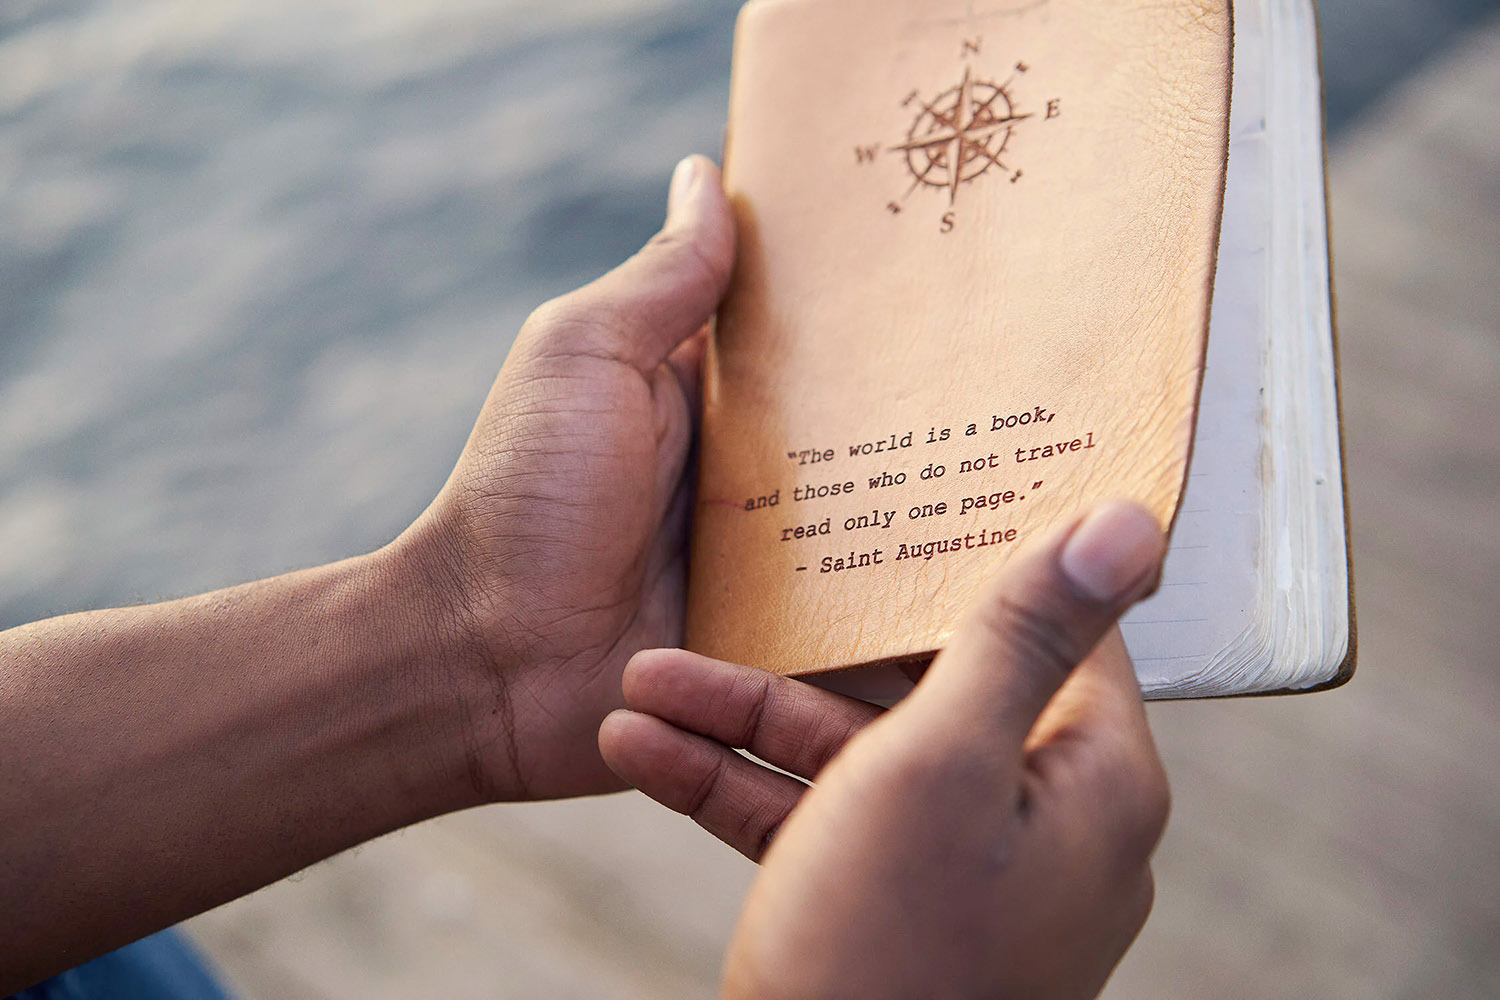 N
E
W
S
"The world is a book,
and those who do not travel
read only one page."
- Saint Augustine